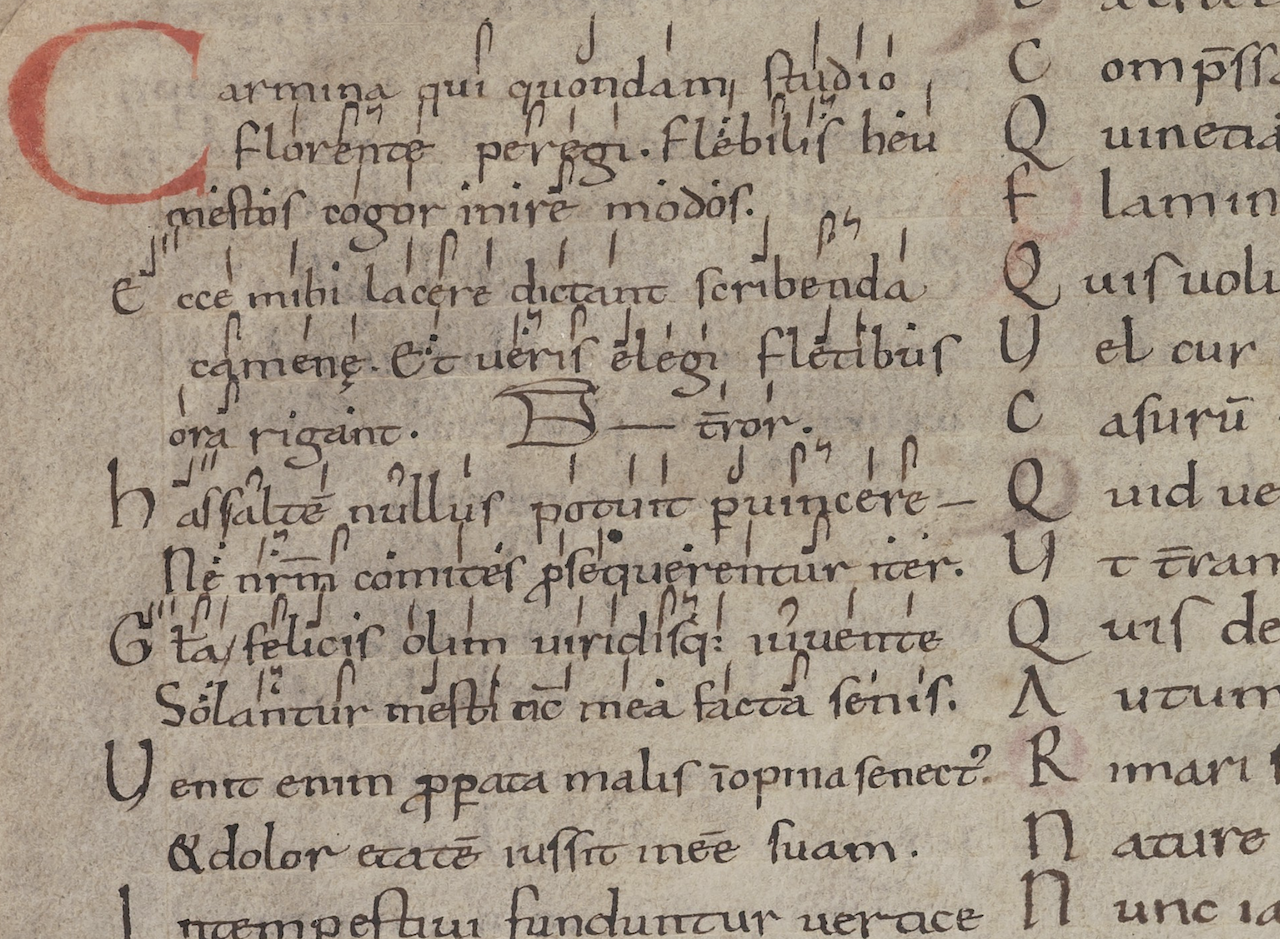 Carmina qui quondam studio
florente peregi. Flebilis heu
mestos cogor inire modos.
Ecce mihi lacere dictant scribenda
camenę. Et ueris elegi fletibus
ora rigant. t̄ror.
has saltē nullus potuit ꝑuincere
Ne nrm̄ comites ꝓsequerentur iter.
Gła felicis olim uiridisq; iuuente
Solantur mesti nc̄ mea facta senis.
Uenit enim ꝓꝑata malis īopina senectꝰ
& dolor etatē iussit inēē suam.
Intempestiui funduntur uertice
C omp̄ssa
Quinetia
Flamin
Quis uolu
Uel cur
Casurū
Quid ue
Ut t̄ram
Quis de
Autum
Rimari s
Nature
Nunc ia